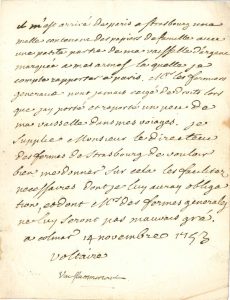 il m'est arrivé de paris a strasbourg une
malle contenant des papiers de famille avec
une petite partie de ma vaisselle d'argent
marquée a mes armes laquelle je
compte rapporter a paris. Mrs les fermiers
generaux n'ont jamais exigé de droits lors
que j'ay porté et reporté un peu de
ma vaisselle dans mes voiages. je
supplie Monsieur le directeur
des fermes de strasbourg de vouloir
bien me donner sur cela les facilitez
necessaires dont je luy auray obliga
tion, et dont Mrs des fermes generales
ne luy seront pas mauvais gré
a colmar 14 novembre 1753
Voltaire